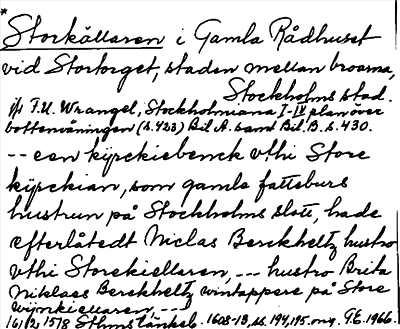 *
Storkällaren i Gamla Rådhuset
vid Stortorget, staden mellan broarna,
Stockholms stad.
jfr F.U. Wrangel, Stockholmiana I-IV plan över
bottenvåningen (s. 423) Bil A. samt Bil. B. s. 430.
-- een kijrckiebenck vthi Store
kijrckian, som gamle fatteburs
hustrun på Stockholms slott, hade
efterlåtedt Niclas Berckheltz hustro
vthi Storekiellaren, --- hustro Brita
Niklaes Berckheltz wintappere på Store
wijnkiellaren, ---
16/12 1578 Sthms tänkeb. 1608-13, ss. 194, 195. G.E. 1966.